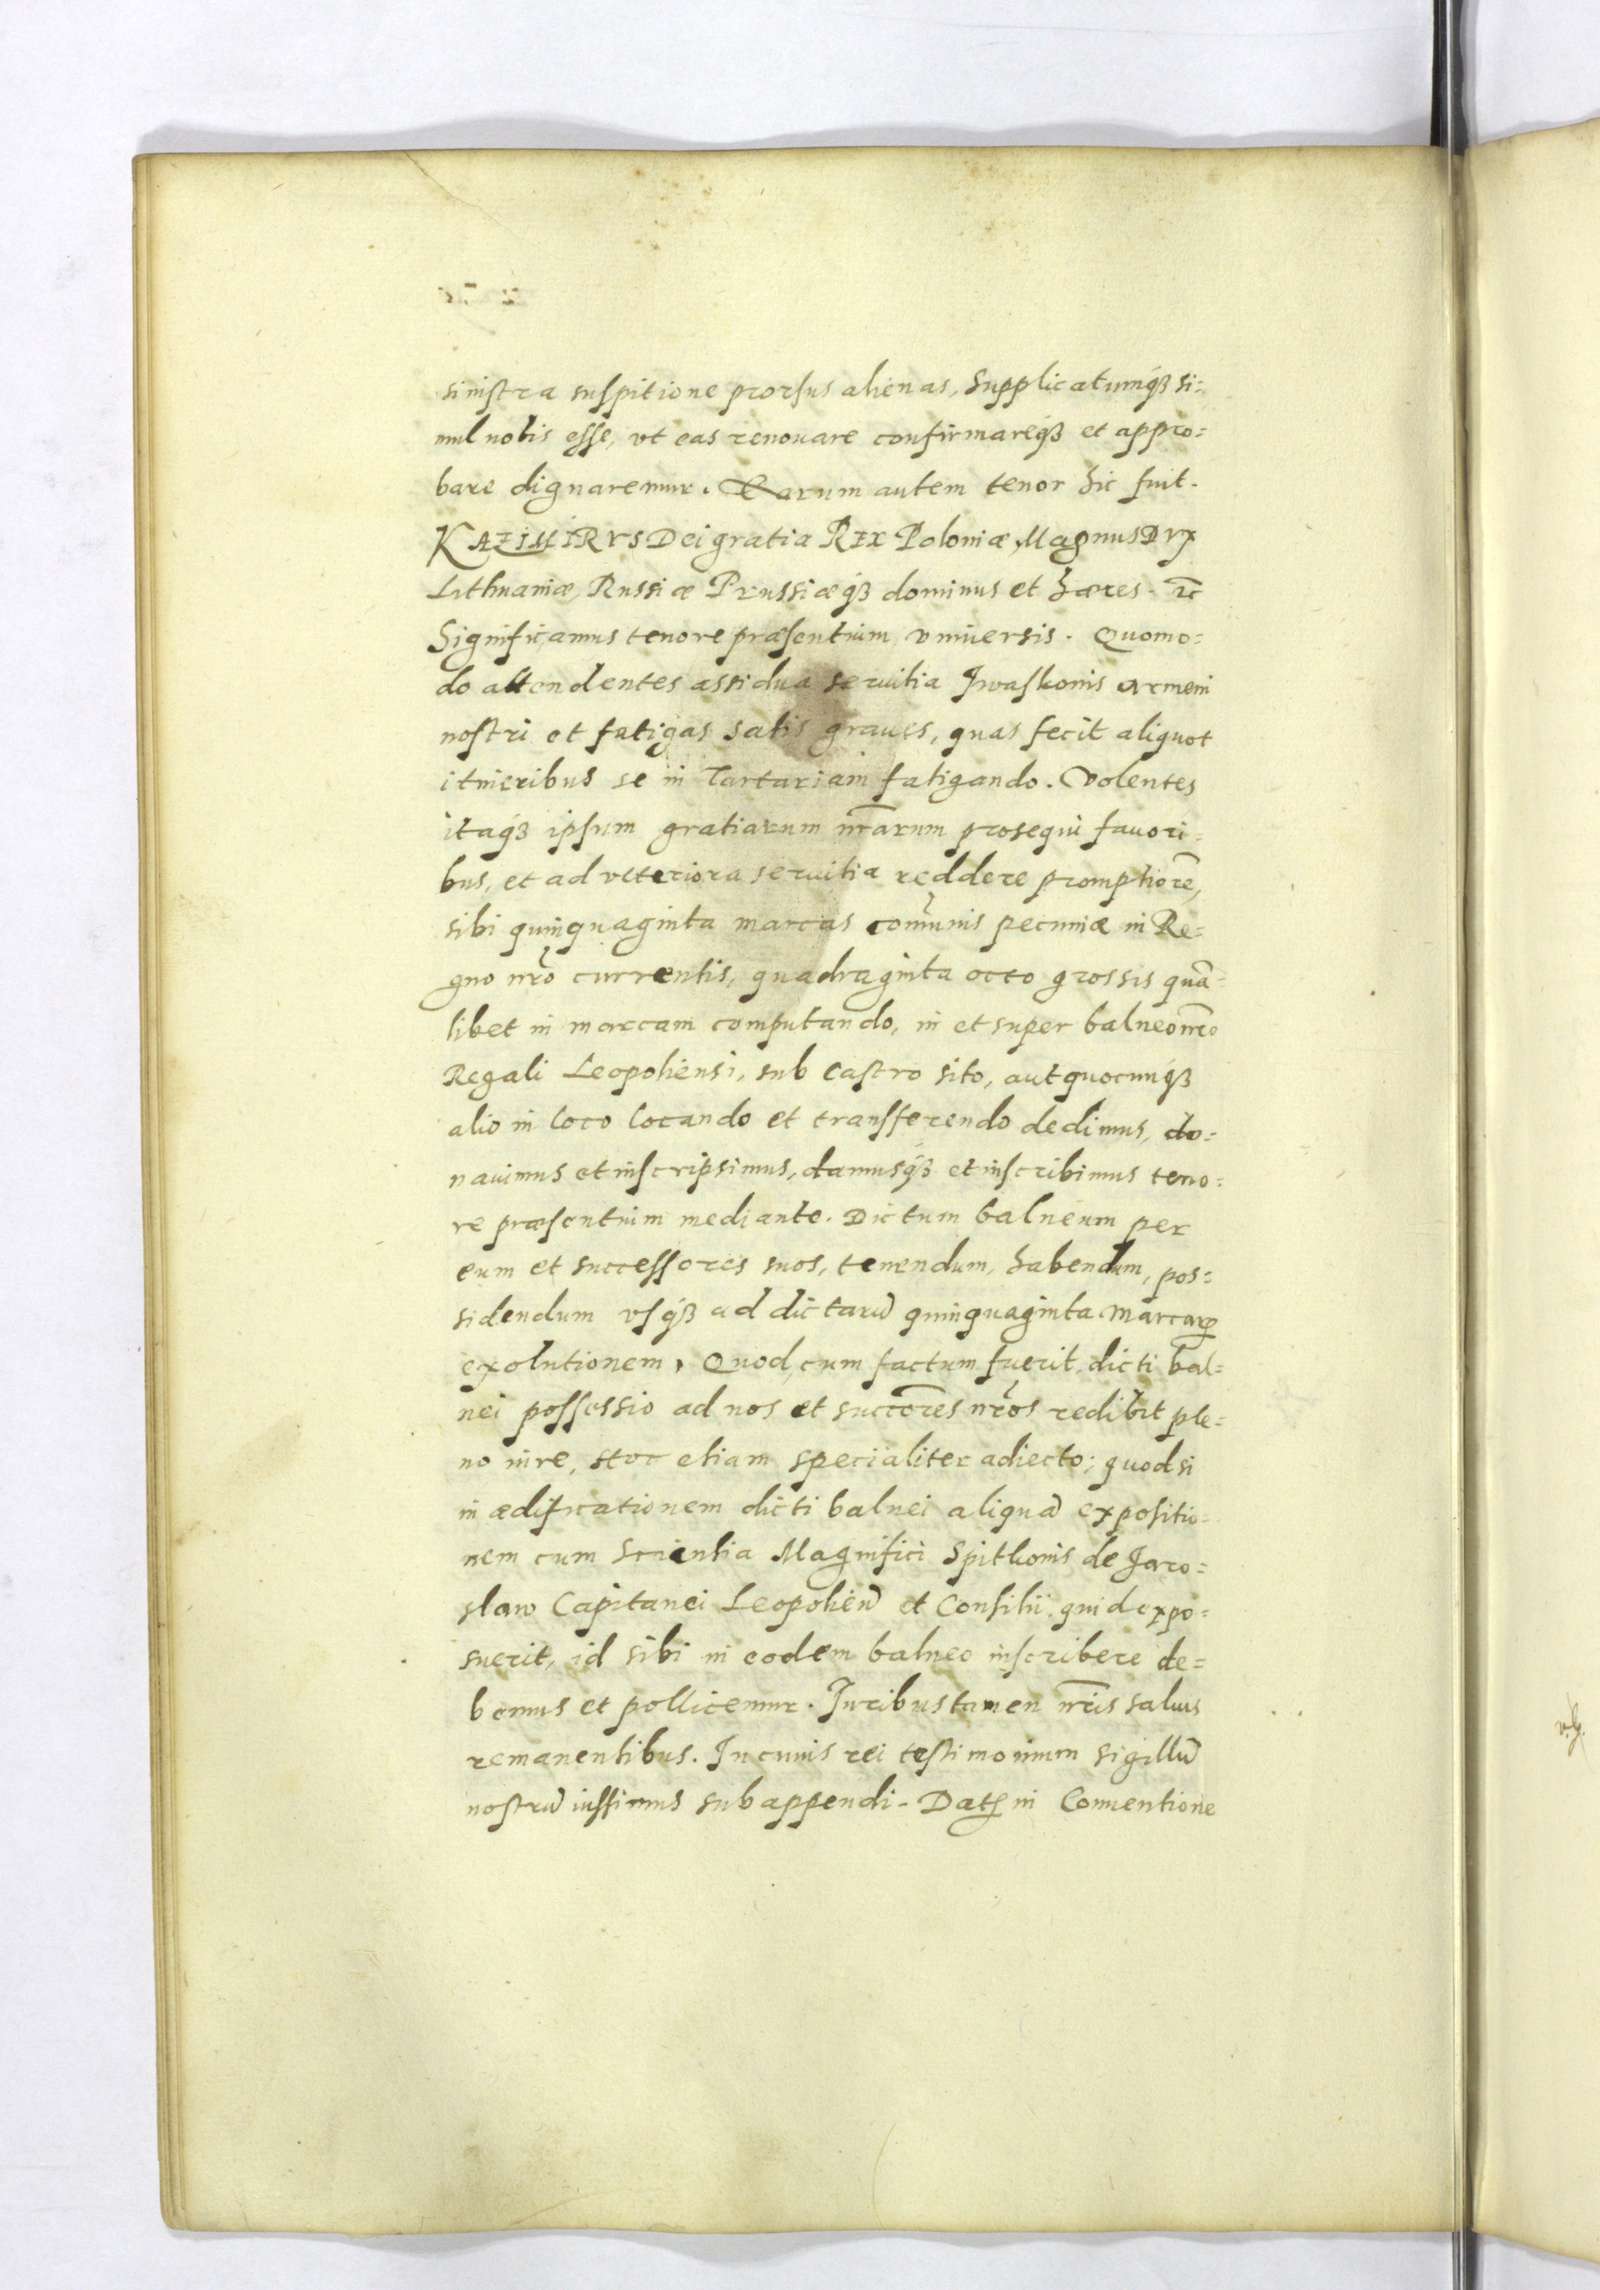 sinistra suspitione prorsus alienas, Supplicatumq́ꝫ si=
mul nobis esse, vt eas renouare confirmareq́ꝫ et appro=
bare dignaremur. Earum autem tenor hic fuit.
KAZIMIRVS Dei gratia REX Poloniæ, Magnus DVX
Lithuaniæ, Russiæ Prussiæq́ꝫ dominus et hæres. ꝛc
Significamus tenore præsentium vniuersis. Quomo=
do attendentes assidua seruitia Iwaskonis armeni
nostri et fatigas satis graues, quas fecit aliquot
itineribus se in Tartariam fatigando. Volentes
itaq́ꝫ ipsum gratiarum nr̃arum prosequi fauori=
bus, et ad vlteriora seruitia reddere promptiorẽ,
sibi quinquaginta marcas com̃unis pecuniæ in Re=
gno nr̃o currentis, quadraginta octo grossis quã=
libet in marcam computando, in et super balneo nr̃o
Regali Leopoliensi, sub castro sito, aut quocunq́ꝫ
alio in loco locando et transferendo dedimus, do=
nauimus et inscripsimus, damusq́ꝫ et inscribimus teno=
re præsentium mediante. Dictum balneum per
eum et successores suos, tenendum, habendum, pos=
sidendum vsq́ꝫ ad dictarũ quinquaginta marcarꝝ
exolutionem, Quod, cum factum fuerit, dicti bal=
nei possessio ad nos et succõres nr̃os redibit ple=
no iure, stoc etiam specialiter adiecto; quod si
in ædificationem dicti balnei aliquã expositio=
nem cum Scientia Magnifici Spitkonis de Jaro=
slaw Capitanei Leopolień et Consilii quid expo=
suerit, id sibi in eodem balneo inscribere de=
bemus et pollicemur. Iuribus tamen nr̃is saluis
remanentibus. In cuius rei testimonium sigillũ
nostrũ iussimus subappendi. Datꝫ in Conuentione